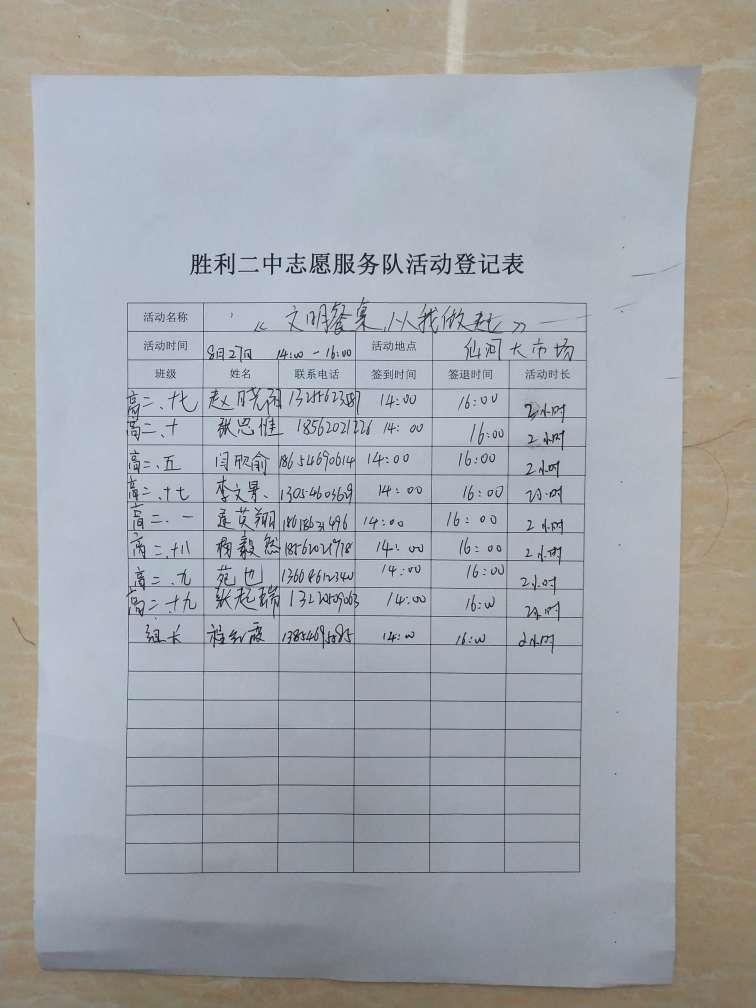 胜利二中志愿服务队活动登记表
活动名称 《文明餐桌,从我做起》
活动时间 8月27日 14:00-16:00 活动地点 仙河大市场
班级 姓名 联系电话 签到时间 签退时间 活动时长
高二、十七 赵晓雨 14:00 16:00 2小时
高二、十 张思惟 18562021226 14:00 16:00 2小时
高二、五 闫欣俞 18654690614 14:00 16:00 2小时
高二、十七 李文景 13054603629 14:00 16:00 2小时
高二、一 英翔 14:00 16:00 2小时
高二、十八 杨毅然 14:00 16:00 2小时
高二、九 苑也 13604612340 14:00 16:00 2小时
高二、十九 张起瑞 14:00 16:00 2小时
组长 14:00 16:00 2小时